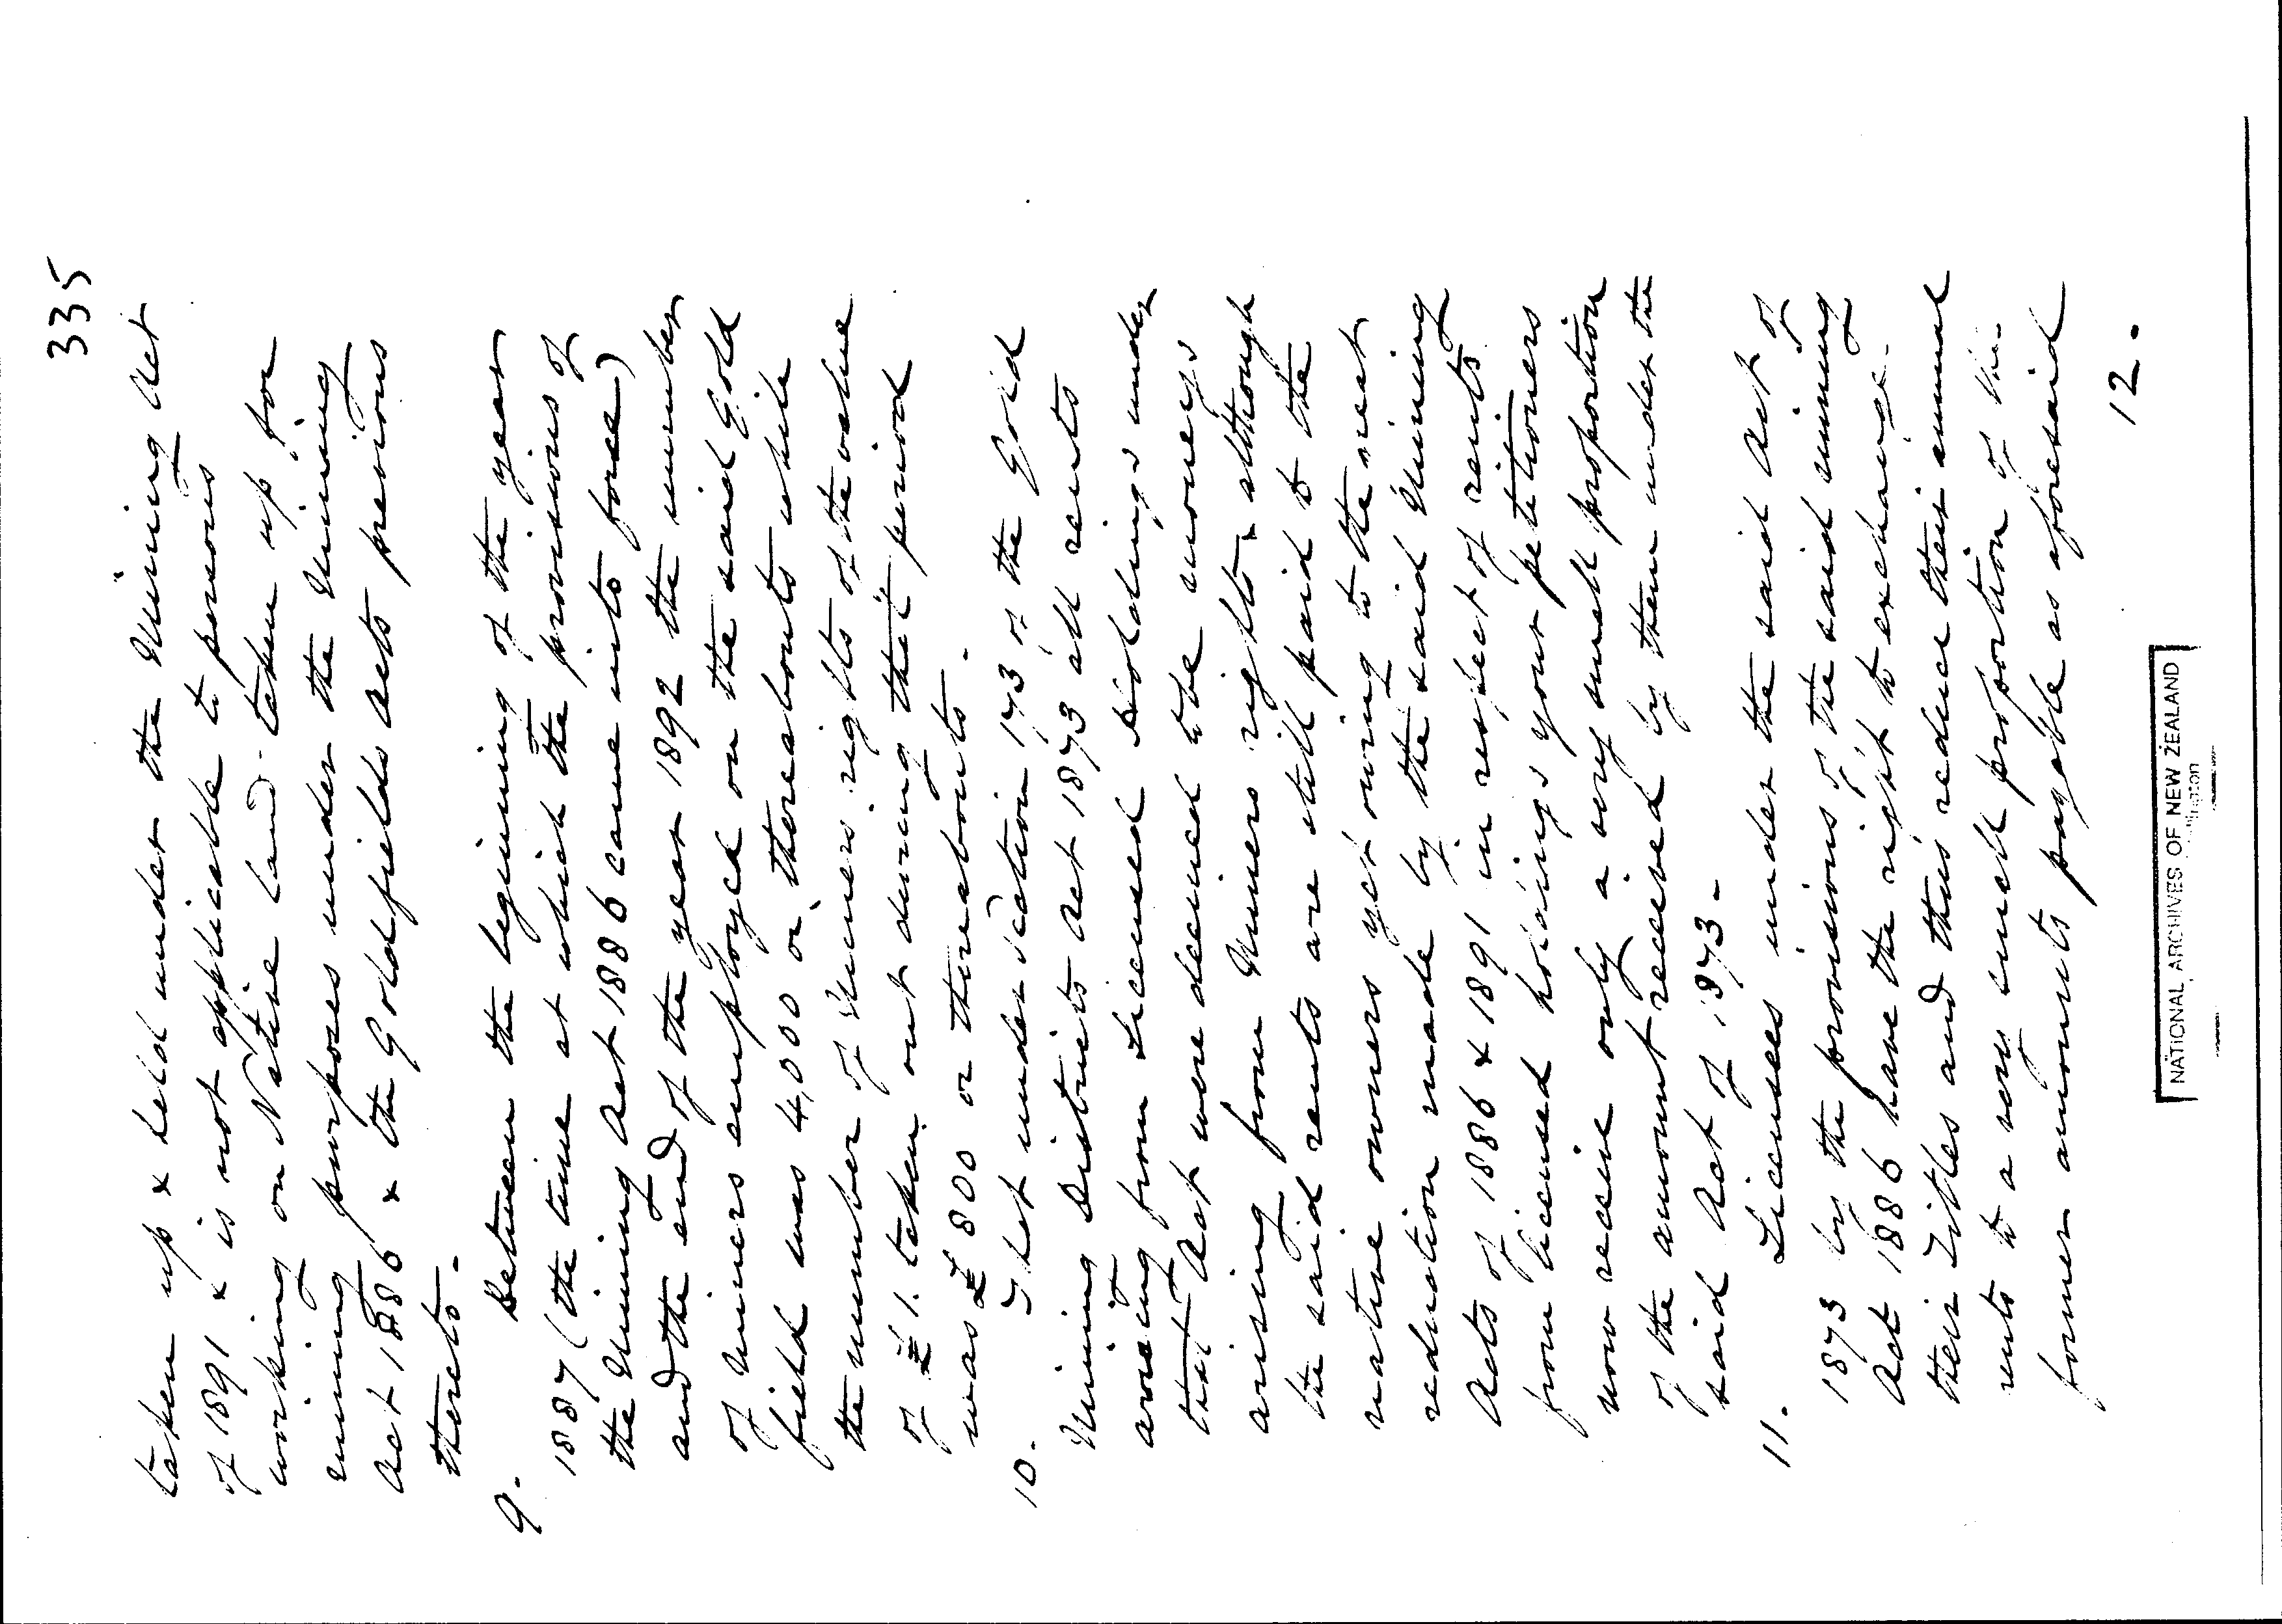 335
taken up & held under the Mining Act
of 1891 & is not applicable to persons
working on Native land taken up for
mining purposes under the Mining
Act 1886 & the Goldfields Acts previous
thereto.
9. Between the beginning of the year
1887 (the time at which the provisions of
the Mining Act 1886 came into force)
and the end of the year 1892 the number
of Miners employed on the said Gold
field was 4,000 or thereabouts while
the number of Miners rights of the value
of £1. taken out during that period
was £800 or thereabouts.
10. That under section 173 of the Gold
Mining Districts Act 1873 all rents
arising from Licensed Holdings under
that Act were deemed to be moneys
arising from Miners rights & although
the said rents are still paid to the
native owners yet owing to the great
reduction made by the said Mining
Acts of 1886 & 1891 in respect of rents
from licensed holdings your petitioners
now receive only a very small proportion
of the amount received by them under the
said Act of 1873 -
11. Licensees under the said Act of
1873 by the provisions of the said mining
Act 1886 have the right to exchange
their Titles and thus reduce their annual
rents to a very small proportion of the
former amounts payable as aforesaid
12.
NATIONAL ARCHIVES OF NEW ZEALAND